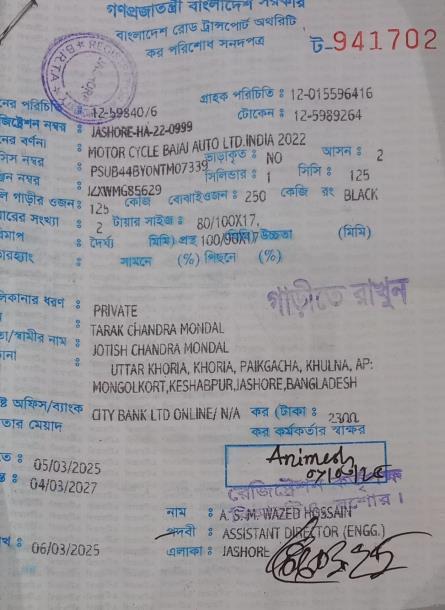 গণপ্রজাতন্ত্রী বাংলাদেশ সরকার
বাংলাদেশ রোড ট্রান্সপোর্ট অথরিটি
কর পরিশোধ সনদপত্র
ট-941702
গ্রাহক পরিচিতি : 12-015596416
নের পরিচিতি : 12-59840/6 টোকেন : 12-5989264
জিষ্ট্রেশন নম্বর : JASHORE-HA-22-0999
নের বর্ণনা : MOTOR CYCLE BAJAJ AUTO LTD.INDIA 2022
সিস নম্বর : PSUB44BY0NTM07339 ভাড়াকৃত : NO আসন : 2
ন নম্বর : সিলিন্ডার : 1 সিসি : 125
লি গাড়ীর ওজন : 125 কেজি বোঝাইওজন : 250 কেজি রং BLACK
ারের সংখ্যা : 2 টায়ার সাইজ : 80/100X17,
িমাপ : দৈর্ঘ্য মিমি) প্রস্থ 100/90X17 উচ্চতা (মিমি)
ারহ্যাং : সামনে (%) পিছনে (%)
গাড়ীতে রাখুন
লিকানার ধরণ : PRIVATE
: TARAK CHANDRA MONDAL
তা/স্বামীর নাম : JOTISH CHANDRA MONDAL
কানা : UTTAR KHORIA, KHORIA, PAIKGACHA, KHULNA, AP:
MONGOLKORT,KESHABPUR,JASHORE,BANGLADESH
ষ্ট অফিস/ব্যাংক CITY BANK LTD ONLINE/ N/A কর (টাকা : 2300
তার মেয়াদ কর কর্মকর্তার স্বাক্ষর
Animesh
তে : 05/03/2025
ন্ত : 04/03/2027
নাম : A. S. M. WAZED HOSSAIN
পদবী : ASSISTANT DIRECTOR (ENGG.)
খ : 06/03/2025 এলাকা : JASHORE